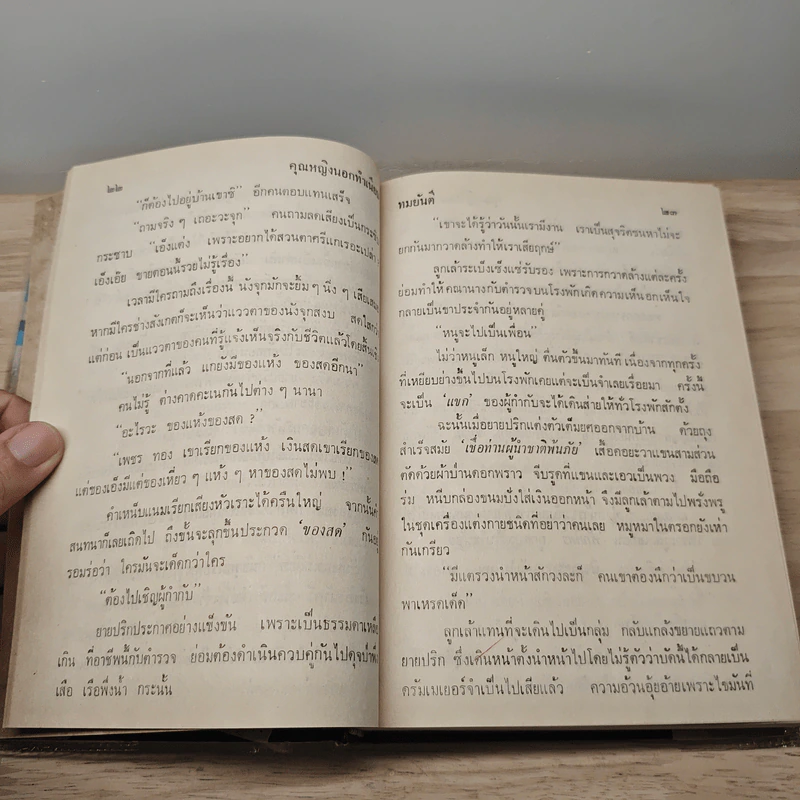 ๒๒
คุณหญิงนอกทำเนียบ
"ก็ต้องไปอยู่บ้านเขาซิ" อีกคนตอบแทนเสร็จ
"ถามจริง ๆ เถอะวะจุก" คนถามลดเสียงเป็นกระซิบ
กระซาบ "เอ็งแต่ง เพราะอยากได้สวนตาศรีแกเรอะเปล่า
เอ็งเอ๊ย ขายตอนนี้รวยไม่รู้เรื่อง"
เวลามีใครถามถึงเรื่องนี้ นังจุกมักจะยิ้ม ๆ นิ่ง ๆ เสีย
หากมีใครช่างสังเกตก็จะเห็นว่าแววตาของนังจุกสงบ
แต่ก่อน เป็นแววตาของคนที่รู้แจ้งเห็นจริงกับชีวิตแล้วโดย
"นอกจากที่แล้ว แกยังมีของแห้ง ของสดอีกนา"
คนไม่รู้ ต่างคาดคะเนกันไปต่าง ๆ นานา
"อะไรวะ ของแห้งของสด ?"
"เพชร ทอง เขาเรียกของแห้ง เงินสดเขาเรียกของสด
แต่ของเอ็งมีแต่ของเหี่ยว ๆ แห้ง ๆ หาของสดไม่พบ !"
คำเหน็บแนมเรียกเสียงหัวเราะได้ครืนใหญ่ จากนั้น
สนทนาก็เลยเถิดไป ถึงขั้นจะลุกขึ้นประกวด 'ของสด' กัน
รอมร่อว่า ใครมันจะเด็ดกว่าใคร
"ต้องไปเชิญผู้กำกับ"
ยายปริกประกาศอย่างแข็งขัน เพราะเป็นธรรมดาเหลือ
เกิน ที่อาชีพนี้กับตำรวจ ย่อมต้องดำเนินควบคู่กันไปดุจป่าพึ่ง
เสือ เรือพึ่งน้ำ กระนั้น
ทมยันตี
๒๓
"เขาจะได้รู้ว่าวันนั้นเรามีงาน เราเป็นสุจริตชนหาไม่จะ
ยกกันมากวาดล้างทำให้เราเสียฤกษ์"
ลูกเล้าระเบ็งเซ็งแซ่รับรอง เพราะการกวาดล้างแต่ละครั้ง
ย่อมทำให้คณานางกับตำรวจบนโรงพักเกิดความเห็นอกเห็นใจ
กลายเป็นขาประจำกันอยู่หลายคู่
"หนูจะไปเป็นเพื่อน"
ไม่ว่าหนูเล็ก หนูใหญ่ ตื่นตัวขึ้นมาทันที เนื่องจากทุกครั้ง
ที่เหยียบย่างขึ้นไปบนโรงพักเคยแต่จะเป็นจำเลยเรื่อยมา ครั้งนี้
จะเป็น 'แขก' ของผู้กำกับจะได้เดินส่ายให้ทั่วโรงพักสักตั้ง
ฉะนั้นเมื่อยายปริกแต่งตัวเต็มยศออกจากบ้าน ด้วยถุง
สำเร็จสมัย 'เชื่อท่านผู้นำชาติพ้นภัย' เสื้อคอยะวาแขนสามส่วน
ตัดด้วยผ้าป่านดอกพราว จีบรูดที่แขนและเอวเป็นพวง มือถือ
ร่ม หนีบกล่องขนมปังใส่เงินออกหน้า จึงมีลูกเล้าตามไปพรั่งพรู
ในชุดเครื่องแต่งกายชนิดที่อย่าว่าคนเลย หมูหมาในตรอกยังเห่า
กันเกรียว
"มีแตรวงนำหน้าสักวงละก็ คนเขาต้องนึกว่าเป็นขบวน
พาเหรดเด็ด"
ลูกเล้าแทนที่จะเดินไปเป็นกลุ่ม กลับแกล้งขยายแถวตาม
ยายปริก ซึ่งเดินหน้าตั้งนำหน้าไปโดยไม่รู้ตัวว่าบัดนี้ได้กลายเป็น
ดรัมเมเยอร์จำเป็นไปเสียแล้ว ความอ้วนอุ้ยอ้ายเพราะไขมันที่